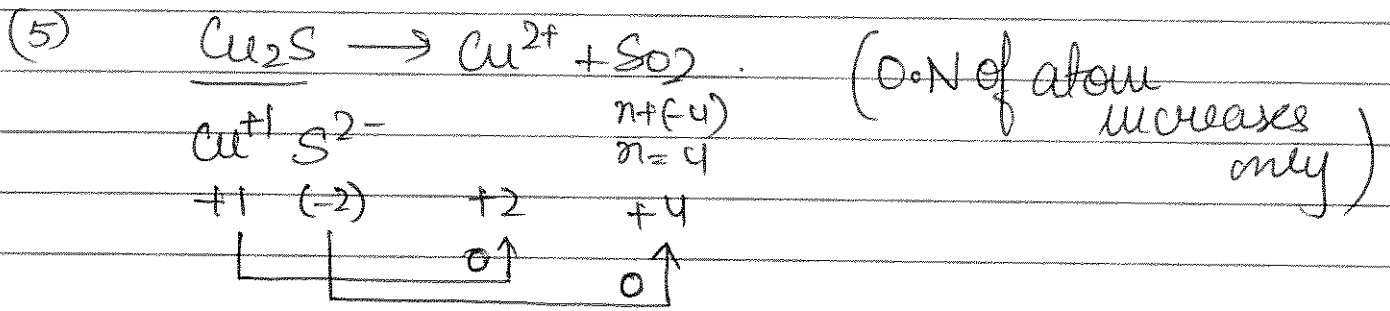 (5) Cu₂S → Cu²⁺ + SO₂. (O.N of atom
increases
only)
Cu⁺¹ S²⁻ n+(-4)
n=4
+1 (-2) +2 +4
O
O